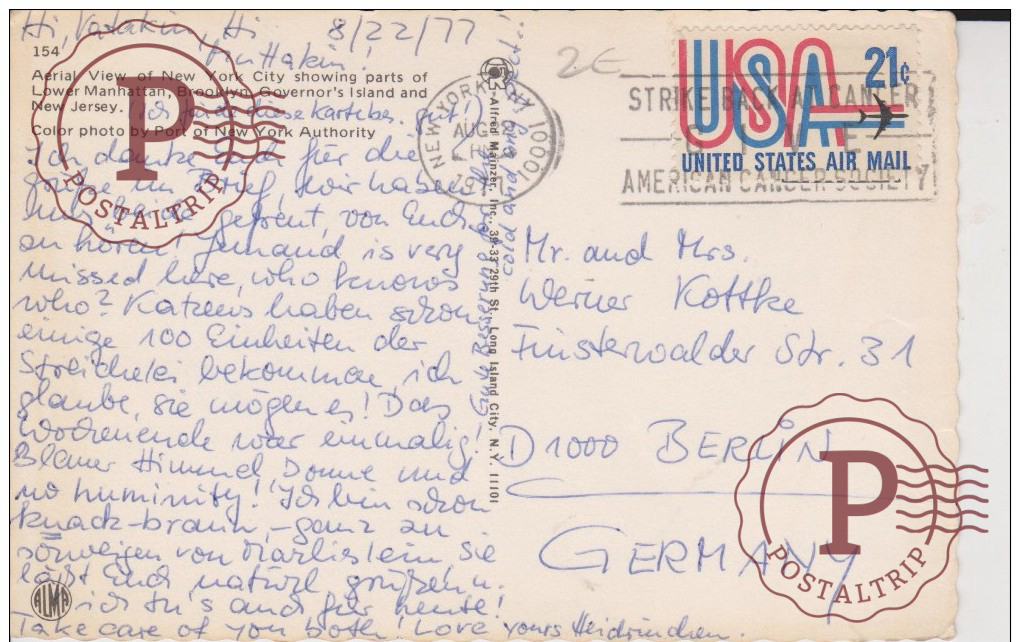 Hi, Vatakin, Hi 8/22/77
Muttakin!
154
Aerial View of New York City showing parts of
Lower Manhattan, Brooklyn, Governor's Island and
New Jersey.
Color photo by Port of New York Authority
Ich danke Euch für die
Grüße im Brief, wir haben
uns gefreut, von Euch
zu hören! Jemand is very
missed here, who knows
who? Katzens haben schon
einige 100 Einheiten der
Streichelei bekommen, ich
glaube, sie mögen es! Das
Wochenende war einmalig!
Blauer Himmel, Sonne und
no huminity! Ich bin schon
knack-braun, - ganz zu
schweigen von Marlieslein, sie
läßt Euch natürl. grüßen u.
ich tu's auch für heute!
Take care of you both! Love yours Heidrinchen.
Gute Besserung
cold and
Alfred Mainzer, Inc., 39-33 29th St., Long Island City, N.Y. 11101
ALMA
2€
NEW YORK, NY 10001
AUG 22
1977
STRIKE BACK AT CANCER
GIVE
AMERICAN CANCER SOCIETY
USA 21c
UNITED STATES AIR MAIL
Mr. and Mrs.
Werner Kottke
Finsterwalder Str. 31
D 1000 BERLIN
GERMANY
P
POSTALTRIP
P
POSTALTRIP